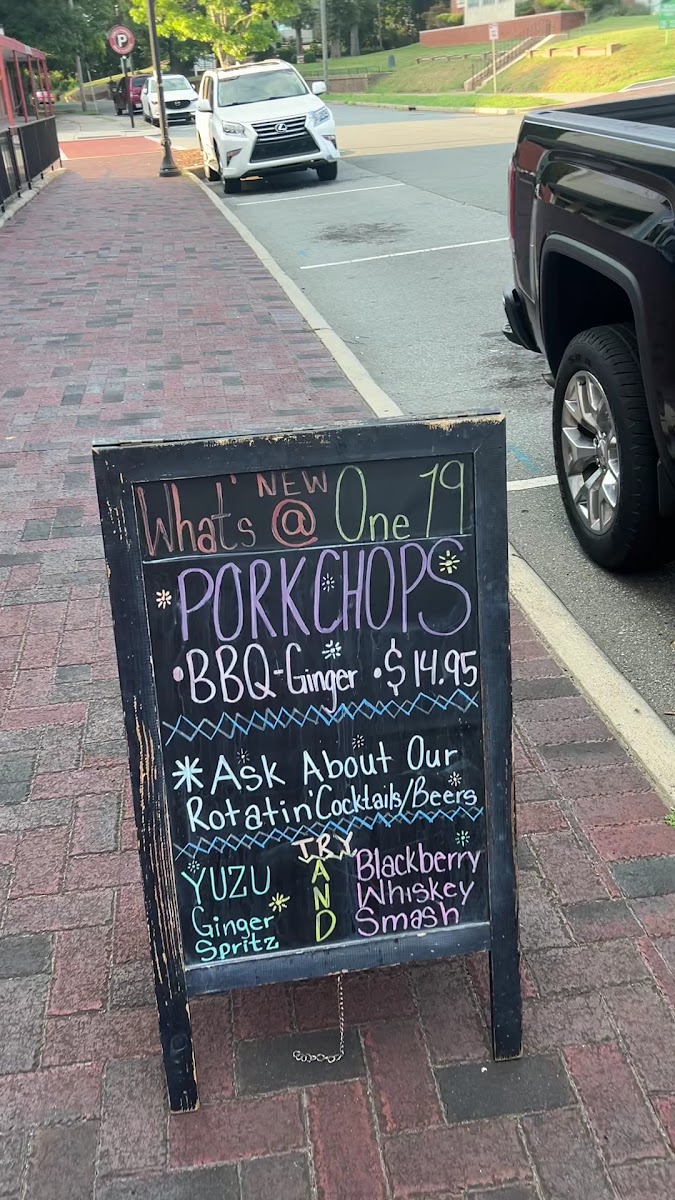 P
What's NEW @ One 19
PORKCHOPS
•BBQ-Ginger •$14.95
*Ask About Our
Rotatin' Cocktails/Beers
TRY
AND
YUZU
Ginger
Spritz
Blackberry
Whiskey
Smash